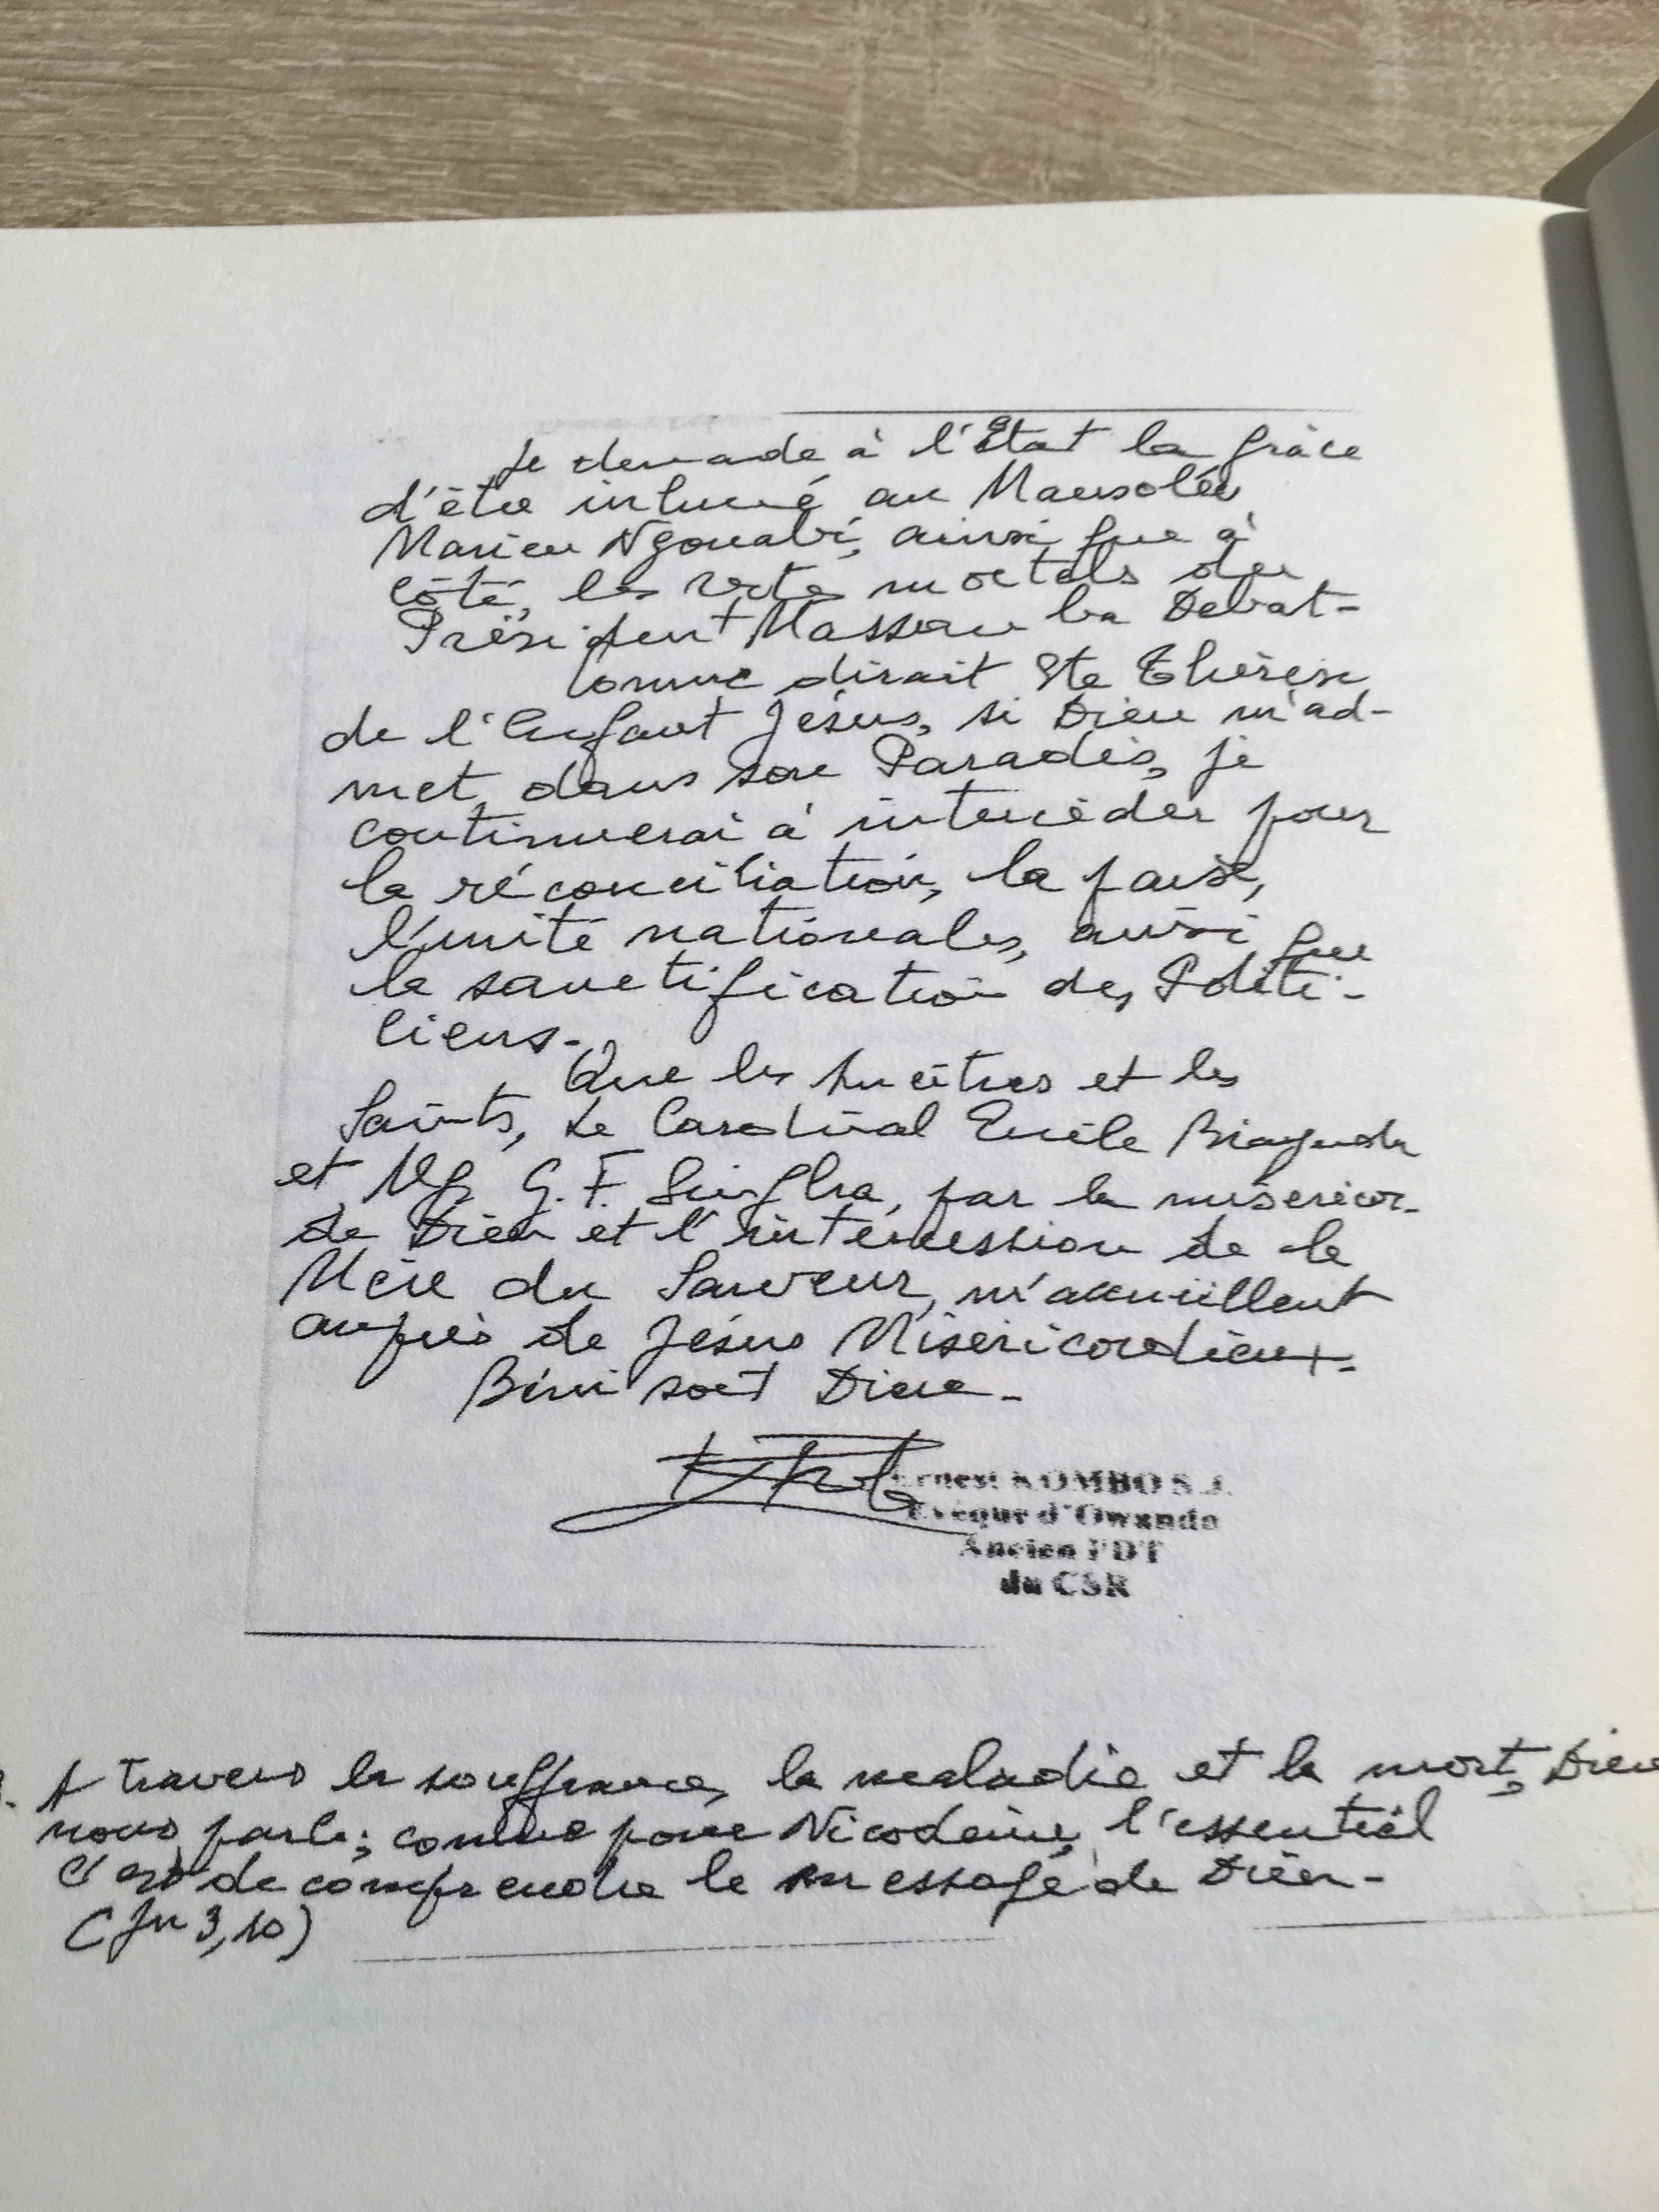 Je demande à l'État la grâce
d'être inhumé au Mausolée
Marien Ngouabi, ainsi que à
côté, les restes mortels du
Président Massamba Debat-
Comme dirait Ste Thérèse
de l'Enfant Jésus, si Dieu m'ad-
met dans son Paradis, je
continuerai à intercéder pour
la réconciliation, la paix,
l'unité nationales, ainsi que
la sanctification des Politi-
ciens.
Que les Ancêtres et les
Saints, Le Cardinal Emile Biayenda
et Mgr G. F. Singha, par la miséricor-
de Dieu et l'intercession de la
Mère du Sauveur, m'accueillent
auprès de Jésus Miséricordieux.
Béni soit Dieu-
Ernest KOMBO S.J.
Evêque d'Owando
Ancien PDT
du CSR
A travers la souffrance, la maladie et la mort, Dieu
nous parle; comme pour Nicodème, l'essentiel
c'est de comprendre le message de Dieu-
(Jn 3, 10)